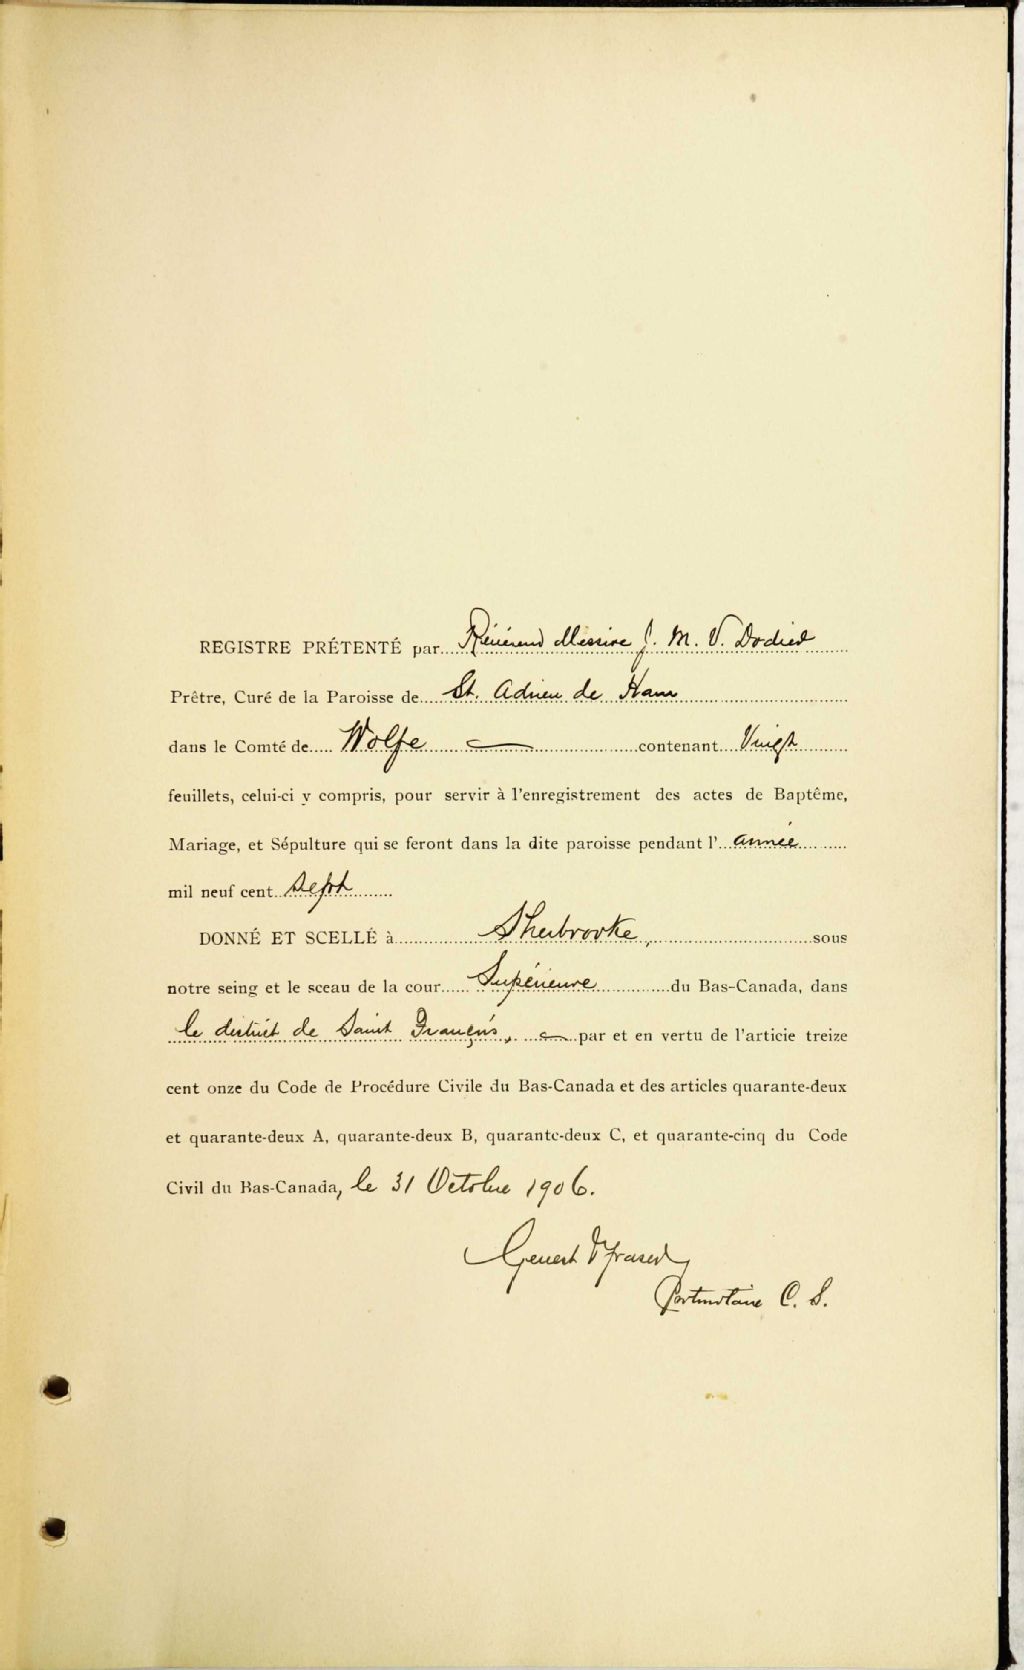 REGISTRE PRÉTENTÉ par Révérend Messire J. M. V. Dodier
Prêtre, Curé de la Paroisse de St. Adrien de Ham
dans le Comté de Wolfe — contenant Vingt
feuillets, celui-ci y compris, pour servir à l'enregistrement des actes de Baptême,
Mariage, et Sépulture qui se feront dans la dite paroisse pendant l'année
mil neuf cent Sept
DONNÉ ET SCELLÉ à Sherbrooke, sous
notre seing et le sceau de la cour Supérieure du Bas-Canada, dans
le district de Saint François, — par et en vertu de l'articie treize
cent onze du Code de Procédure Civile du Bas-Canada et des articles quarante-deux
et quarante-deux A, quarante-deux B, quarante-deux C, et quarante-cinq du Code
Civil du Bas-Canada, le 31 Octobre 1906.
Genest & Fraser
Protonotaire C. S.